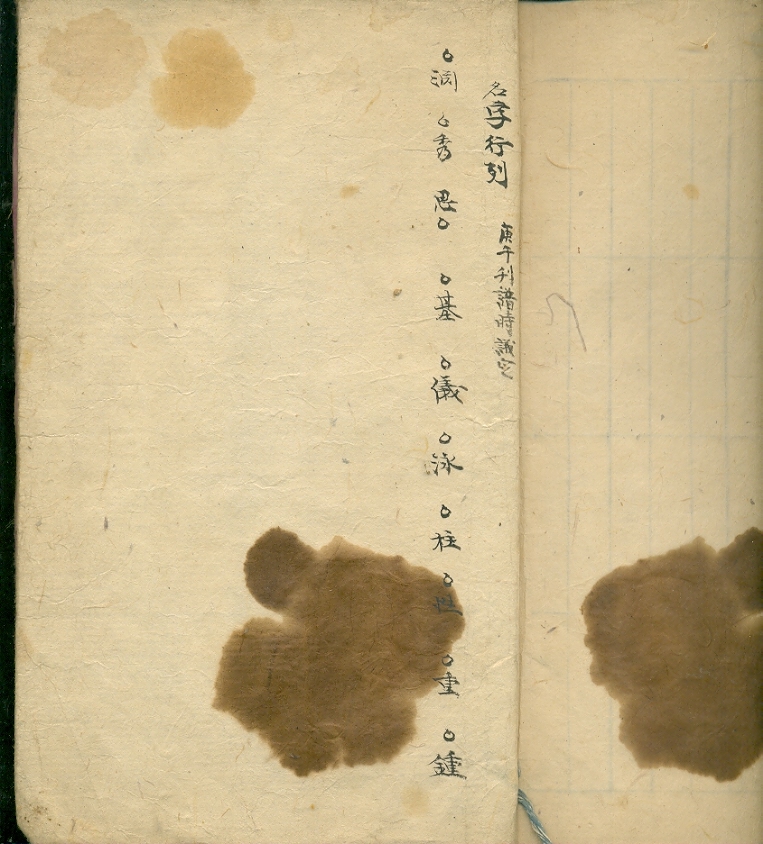 名字行列 庚午刊譜時議定
○潤 ○秀 思○ ○基 ○儀 ○泳 ○柱 ○ ○重 ○鍾